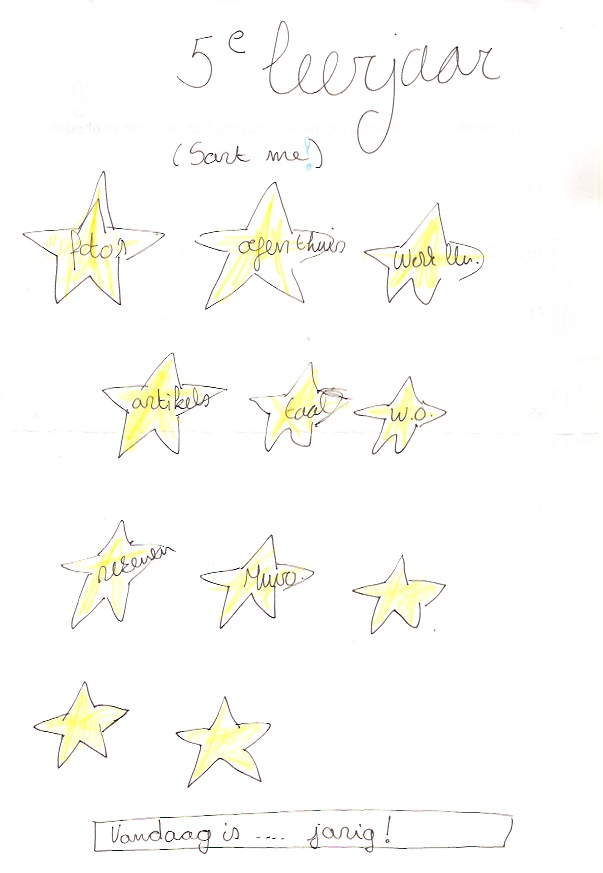 5e leerjaar
(Sart me!)
foto's
oefen thuis
Werk lln.
artikels
taal
W.O.
rekenen
Muvo.
Vandaag is .... jarig!